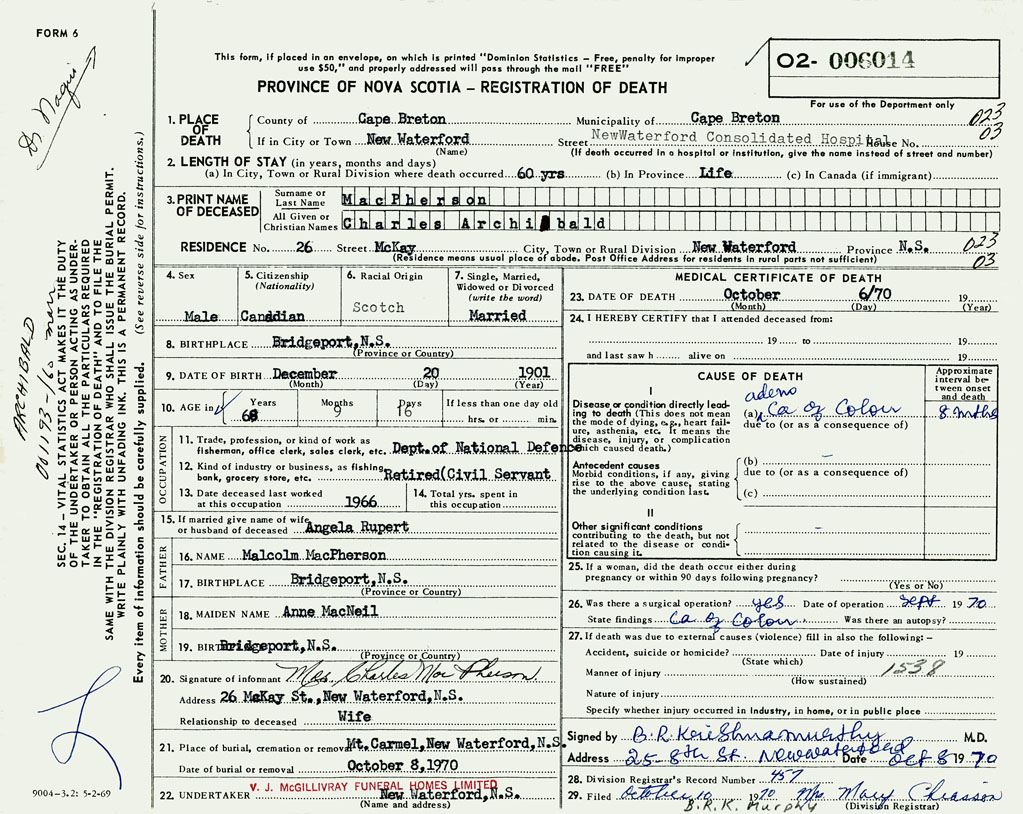 FORM 6
This form, if placed in an envelope, on which is printed "Dominion Statistics – Free, penalty for improper
use $50," and properly addressed will pass through the mail "FREE"
O2- 006014
PROVINCE OF NOVA SCOTIA – REGISTRATION OF DEATH
For use of the Department only
1. PLACE OF DEATH County of Cape Breton Municipality of Cape Breton 023
If in City or Town New Waterford Street NewWaterford Consolidated Hospital House No. 03
(Name) (If death occurred in a hospital or institution, give the name instead of street and number)
2. LENGTH OF STAY (in years, months and days)
(a) In City, Town or Rural Division where death occurred 60 yrs (b) In Province Life (c) In Canada (if immigrant)
3. PRINT NAME OF DECEASED Surname or Last Name MacPherson
All Given or Christian Names Charles Archibald
RESIDENCE No. 26 Street McKay City, Town or Rural Division New Waterford Province N.S. 023
(Residence means usual place of abode. Post Office Address for residents in rural parts not sufficient) 03
4. Sex 5. Citizenship (Nationality) 6. Racial Origin 7. Single, Married, Widowed or Divorced (write the word)
Male Canadian Scotch Married
8. BIRTHPLACE Bridgeport, N.S.
(Province or Country)
9. DATE OF BIRTH December 20 1901
(Month) (Day) (Year)
10. AGE in Years Months Days If less than one day old
68 9 16 hrs. or min.
OCCUPATION
11. Trade, profession, or kind of work as
fisherman, office clerk, sales clerk, etc. Dept. of National Defence
12. Kind of industry or business, as fishing,
bank, grocery store, etc. Retired(Civil Servant
13. Date deceased last worked at this occupation 1966
14. Total yrs. spent in this occupation
15. If married give name of wife
or husband of deceased Angela Rupert
FATHER
16. NAME Malcolm MacPherson
17. BIRTHPLACE Bridgeport,N.S.
(Province or Country)
MOTHER
18. MAIDEN NAME Anne MacNeil
19. BIRTH Bridgeport,N.S.
(Province or Country)
20. Signature of informant Mrs. Charles MacPherson
Address 26 McKay St.,New Waterford,N.S.
Relationship to deceased Wife
21. Place of burial, cremation or removal Mt.Carmel,New Waterford,N.S.
Date of burial or removal October 8,1970
V. J. McGILLIVRAY FUNERAL HOMES LIMITED
22. UNDERTAKER New Waterford,N.S.
(Name and address)
MEDICAL CERTIFICATE OF DEATH
23. DATE OF DEATH October 6/70 19
(Month) (Day) (Year)
24. I HEREBY CERTIFY that I attended deceased from:
19 to 19
and last saw h alive on 19
CAUSE OF DEATH
Approximate interval between onset and death
I
Disease or condition directly leading
to death (This does not mean
the mode of dying, e.g., heart failure,
asthenia, etc. It means the
disease, injury, or complication
which caused death.)
adeno
(a) Ca of Colon 8 mths
due to (or as a consequence of)
Antecedent causes
Morbid conditions, if any, giving
rise to the above cause, stating
the underlying condition last.
(b) –
due to (or as a consequence of)
(c)
II
Other significant conditions
contributing to the death, but not
related to the disease or condition
causing it.
–
25. If a woman, did the death occur either during
pregnancy or within 90 days following pregnancy?
(Yes or No)
26. Was there a surgical operation? yes Date of operation Sept 1970
State findings Ca of Colon Was there an autopsy?
27. If death was due to external causes (violence) fill in also the following: –
Accident, suicide or homicide? Date of injury 19
(State which)
Manner of injury 1538
(How sustained)
Nature of injury
Specify whether injury occurred in industry, in home, or in public place
Signed by B.R. Krishnamurthy M.D.
Address 25-8th St. Newwaterford Date Oct 8 1970
28. Division Registrar's Record Number 457
29. Filed October 10 1970 Mrs Mary Chiasson
B.R.K. Murphy (Division Registrar)
Dr Nagin
ARCHIBALD
001193-160 man
SEC. 14 – VITAL STATISTICS ACT MAKES IT THE DUTY
OF THE UNDERTAKER OR PERSON ACTING AS UNDER-
TAKER TO OBTAIN ALL THE PARTICULARS REQUIRED
IN THE "REGISTRATION OF DEATH" AND TO FILE THE
SAME WITH THE DIVISION REGISTRAR WHO SHALL ISSUE THE BURIAL PERMIT.
WRITE PLAINLY WITH UNFADING INK. THIS IS A PERMANENT RECORD.
Every item of information should be carefully supplied. (See reverse side for instructions.)
9004-3.2: 5-2-69